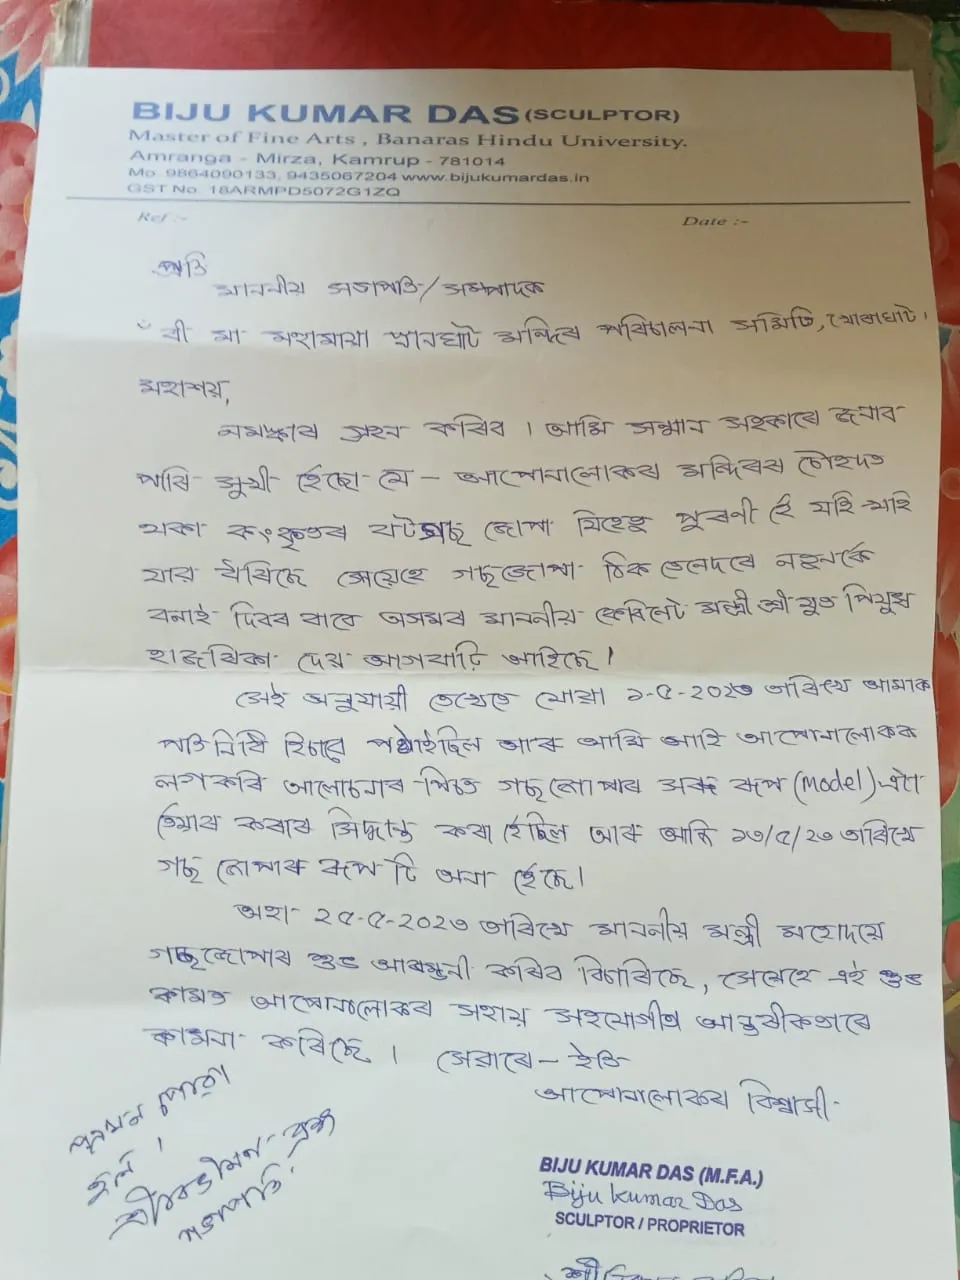 BIJU KUMAR DAS (SCULPTOR)
Master of Fine Arts , Banaras Hindu University.
Amranga - Mirza, Kamrup - 781014
Mo. 9864090133, 9435067204 www.bijukumardas.in
GST No. 18ARMPD5072G1ZQ
Ref :-
Date :-
প্ৰতি
মাননীয় সভাপতি/সম্পাদক
শ্ৰী মা মহামায়া স্নানঘাট মন্দিৰ পৰিচালনা সমিতি,
মহাশয়,
নমস্কাৰ গ্ৰহন কৰিব । আমি সন্মান সহকাৰে জনাব
পাৰি সুখী হৈছো যে – আপোনালোকৰ মন্দিৰৰ চৌহদত
থকা কংকৃতৰ বটগছ জোপা যিহেতু পুৰণী হৈ যহি-যহি
যাব ধৰিছে সেয়েহে গছজোপা ঠিক তেনেদৰে নতুনকৈ
বনাই দিবৰ বাবে অসমৰ মাননীয় কেবিনেট মন্ত্ৰী শ্ৰীযুত পিযুষ
হাজৰিকা দেৱ আগবাঢ়ি আহিছে।
সেই অনুযায়ী তেখেতে যোৱা ১-৫-২০২৩ তাৰিখে আমাক
প্ৰতিনিধি হিচাবে পঠাইছিল আৰু আমি আহি আপোনালোকৰ
লগকৰি আলোচনাৰ পিচত গছজোপাৰ সৰু ৰূপ (Model)-এটা
তৈয়াৰ কৰাৰ সিদ্ধান্ত কৰা হৈছিল আৰু আজি ১৩/৫/২৩ তাৰিখে
গছ জোপাৰ ৰূপ টি অনা হৈছে।
অহা ২৫-৫-২০২৩ তাৰিখে মাননীয় মন্ত্ৰী মহোদয়ে
গছজোপাৰ শুভ আৰম্ভনী কৰিব বিচাৰিছে, সেয়েহে এই শুভ
কামত আপোনালোকৰ সহায় সহযোগীতা আন্তৰীকতাৰে
কামনা কৰিছে । সেৱাৰে – ইতি
আপোনালোকৰ বিশ্বাসী
BIJU KUMAR DAS (M.F.A.)
Biju kumar Das
SCULPTOR / PROPRIETOR
হল ।
সভাপতি